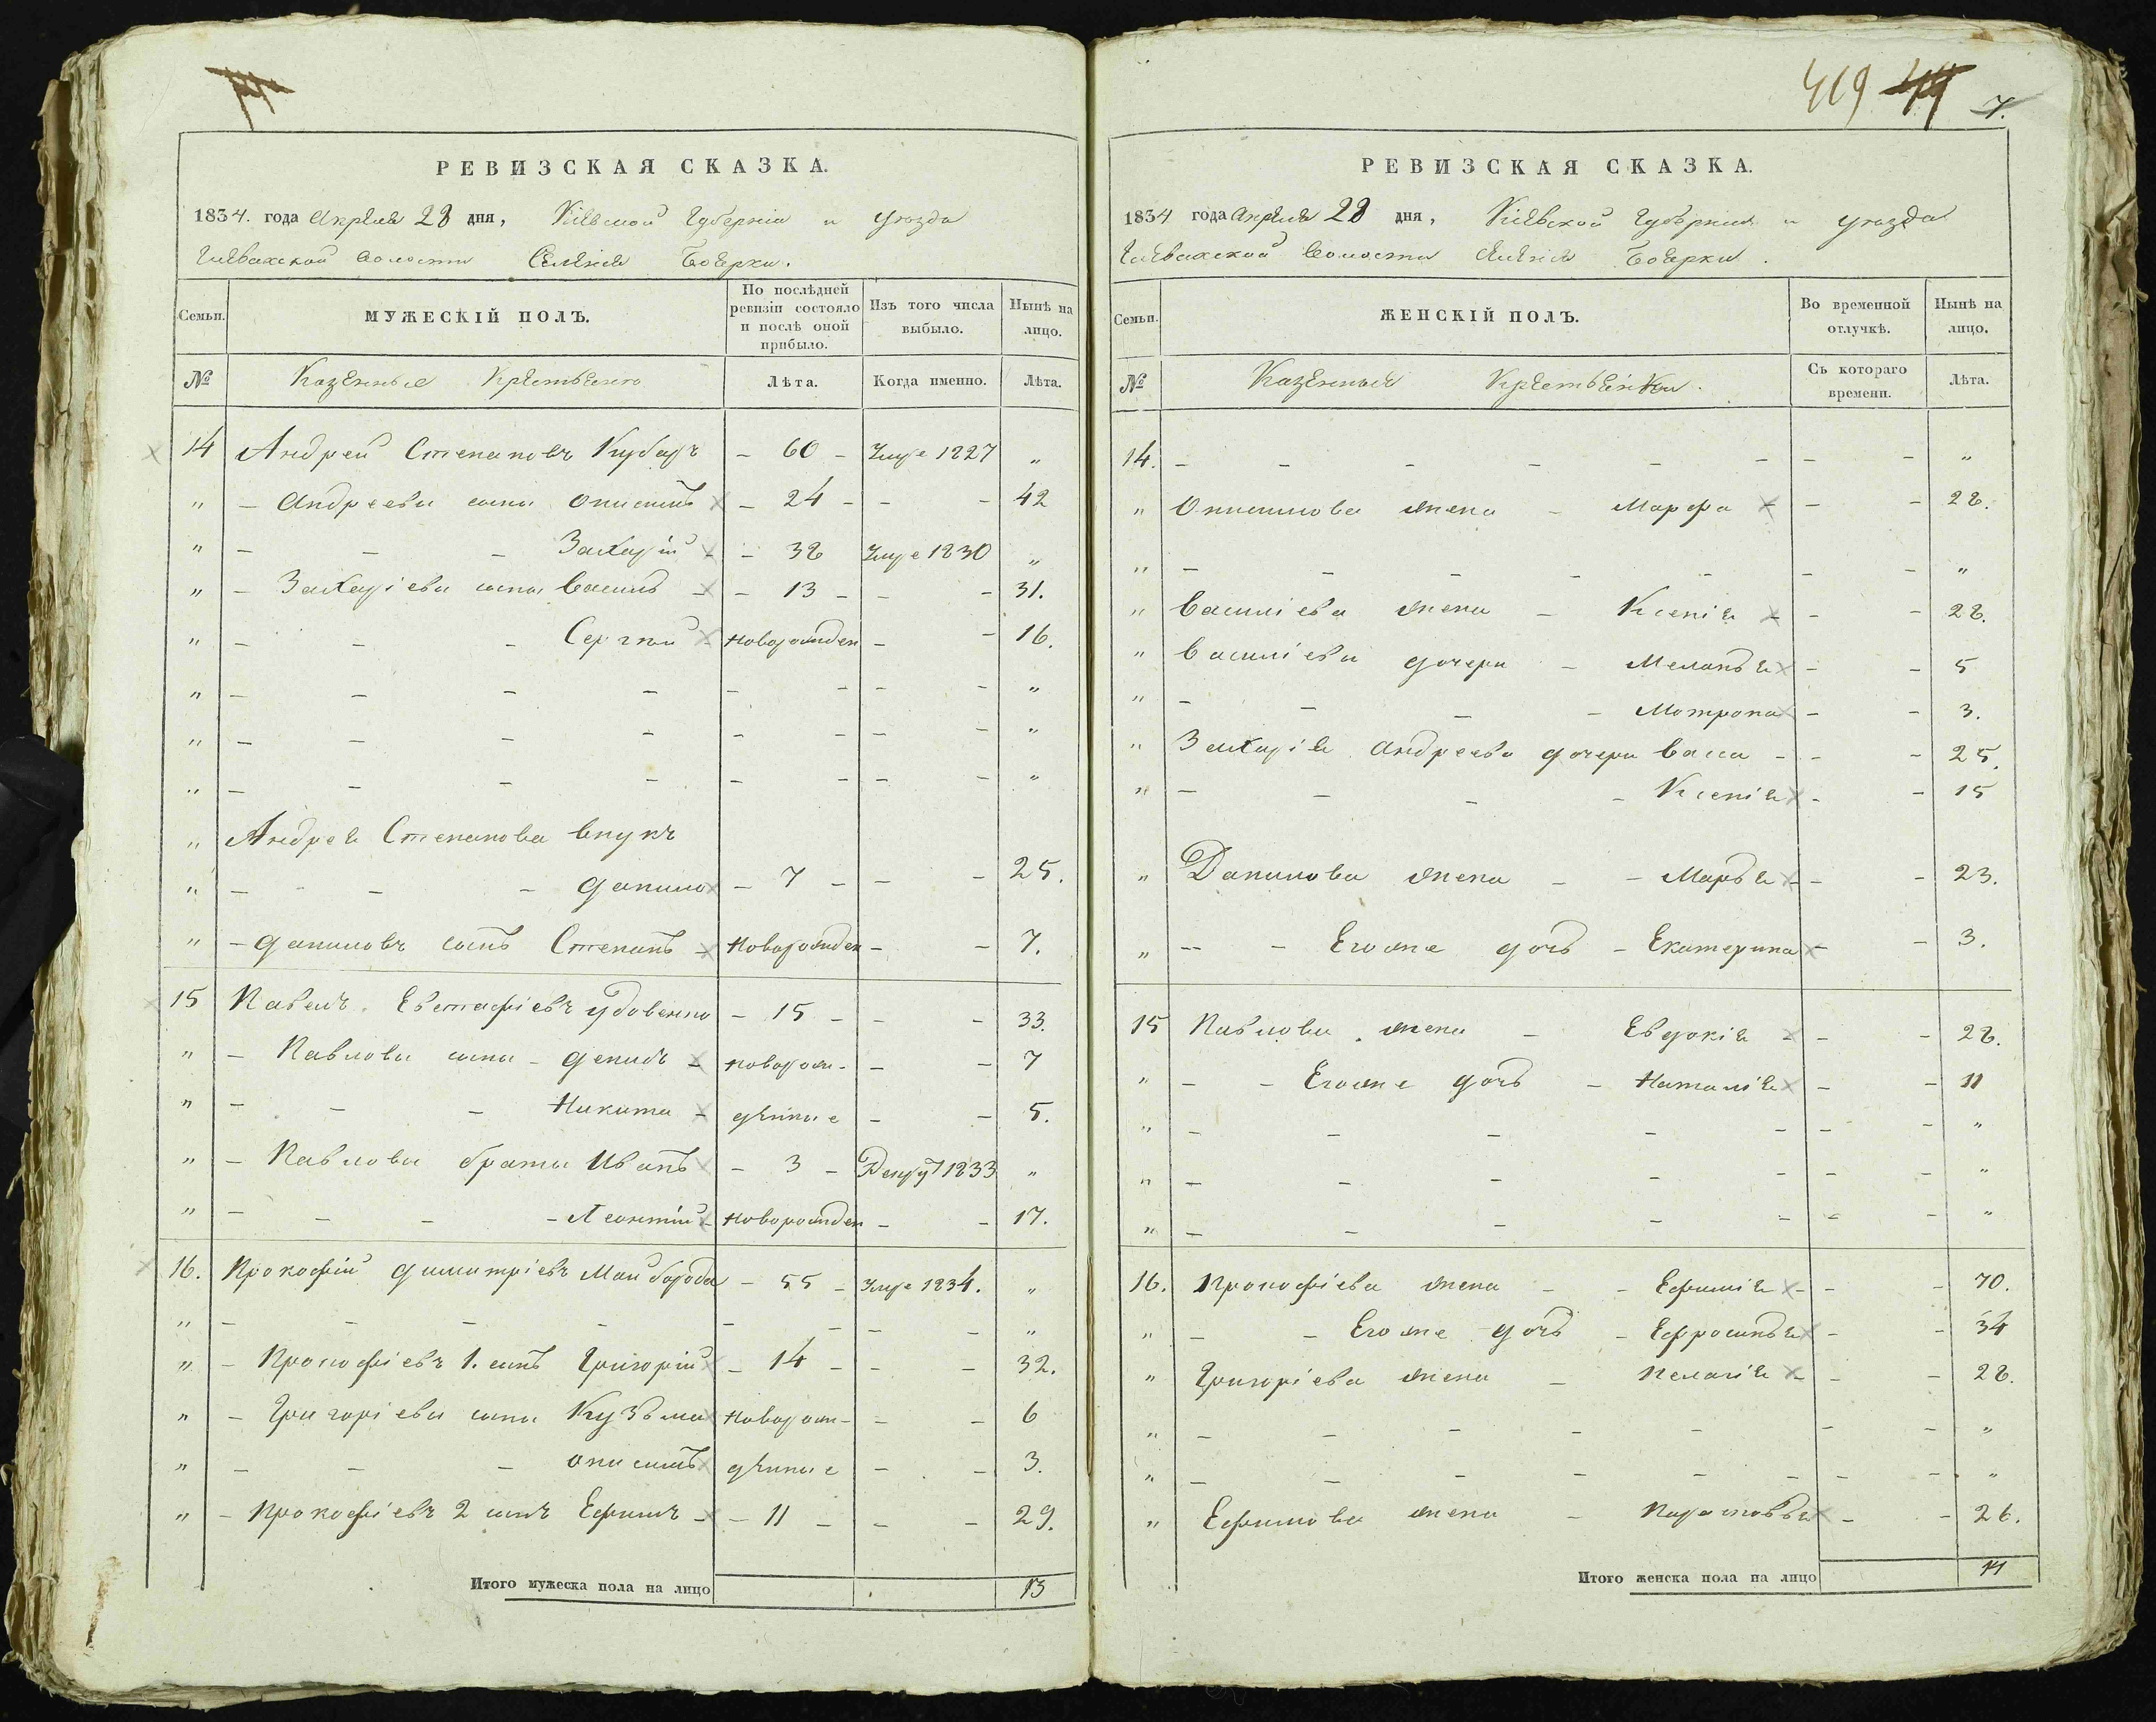 РЕВИЗСКАЯ СКАЗКА.
1834. года Апреля 28 дня, Кіевской Губерніи и уезда
волости Селенія Боерки.
Семьи.
МУЖЕСКІЙ ПОЛЪ.
По послѣдней ревизіи состояло и послѣ оной прибыло.
Изъ того числа выбыло.
Нынѣ на лицо.
№ Казенные Крестьяне Лѣта. Когда именно. Лѣта.
14 Андрей Степановъ Кубаръ – 60 – Умре 1827 „
„ – Андреевы сыны Онисимъ – 24 – – – 42
„ – – – Захарій – 38 Умре 1830 „
„ – Захаріевы сыны Василь – 13 – – – 31.
„ – – – Сергѣй новорожден – – 16.
„ – – – – – – – – „
„ – – – – – – – – „
„ – – – – – – – – „
„ Андрея Степанова внукъ
„ – – – Данило – 7 – – – 25.
„ – Даниловъ сынъ Степанъ новорожден – – 7.
15 Павелъ Евстафіевъ Удовенко – 15 – – – 33.
„ – Павловы сыны – Демидъ новорож- – – 7
„ – – – Никита – денные – – 5.
„ – Павловы браты Иванъ – 3 – Рекрут 1833 „
„ – – – – Леонтій новорожден – – 17.
16. Прокофій Димитріевъ Майборода – 55 – Умре 1834. „
„ – – – – – – – – „
„ – Прокофіевъ 1. сынъ Григорій – 14 – – – 32.
„ – Григоріевы сыны Кузьма новорож- – – 6
„ – – – Онисимъ денные – – 3.
„ – Прокофіевъ 2 сынъ Ефимъ – 11 – – – 29.
Итого мужеска пола на лицо 13
419 7.
РЕВИЗСКАЯ СКАЗКА.
1834 года Апреля 28 дня, Кіевской Губерніи и уезда
волости Селенія Боерки.
Семьи.
ЖЕНСКІЙ ПОЛЪ.
Во временной отлучкѣ.
Нынѣ на лицо.
№ Казенныя Крестьянки. Съ котораго времени. Лѣта.
14. – – – – – – – – „
„ Онисимова жена – Марфа – – 28.
„ – – – – – – – „
„ Василіева жена – Ксенія – – 28.
„ Василіевы дочери – Меланья – – 5
„ – – – – Мотрона – – 3.
„ Захарія Андреева дочери Васса – – – 25.
„ – – – – Ксенія – – 15
„ Данилова жена – – Марья – – 23.
„ – – Егоже дочь – Екатерина – – 3.
15 Павлова жена – Евдокія – – 28.
„ – – Егоже дочь – Наталія – – 11
„ – – – – – – – „
„ – – – – – – – „
„ – – – – – – – „
16. Прокофіева жена – – Ефимія – – 70.
„ – – Егоже дочь – Ефросинья – – 34
„ Григоріева жена – Пелагія – – 28.
„ – – – – – – – „
„ – – – – – – – – „
„ Ефимова жена – Парасковья – – 26.
Итого женска пола на лицо 14